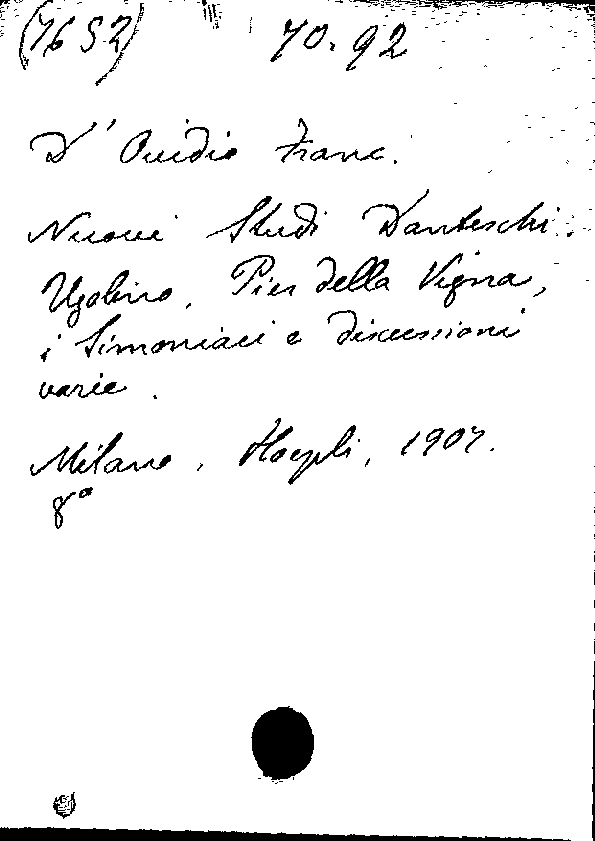 (7652) 70.92
D'Ovidio Franc.
Nuovi Studi Danteschi.
Ugolino, Pier della Vigna,
i Simoniaci e discussioni
varie.
Milano, Hoepli, 1907.
8°